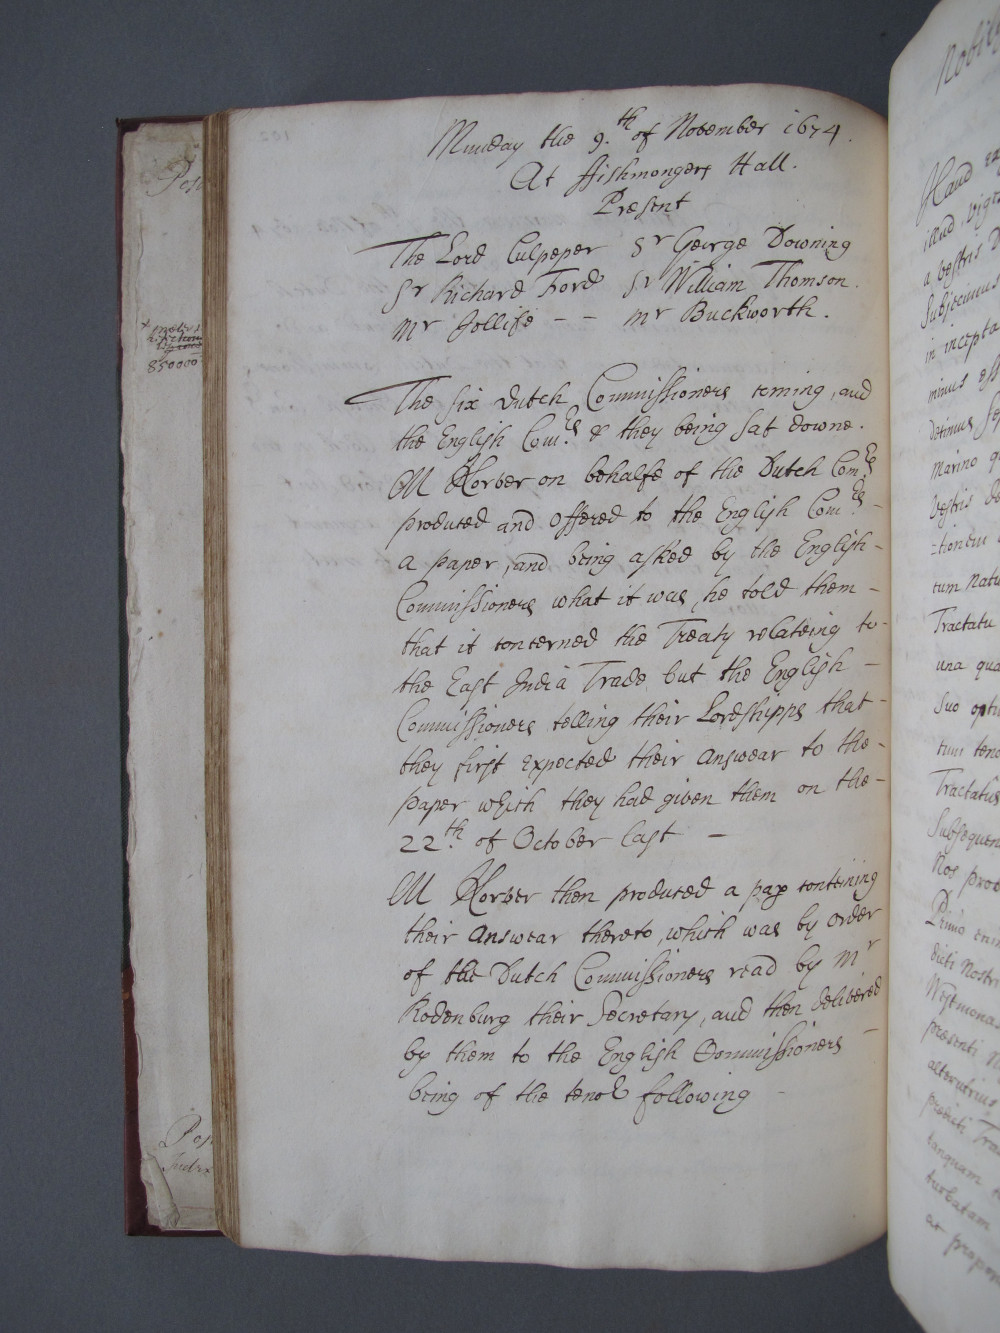 Munday the 9.th of November 1674.
At ffishmongers Hall.
Present
The Lord Culpeper Sr George Downing
Sr Richard Ford Sr William Thomson.
Mr Jollife - - Mr Buckworth.
The six Dutch Commissioners coming, and
the English Com.rs & they being sat downe.
M Korver on behalfe of the Dutch Com.rs
produced and offered to the English Com.rs -
a paper, and being asked by the English -
Commissioners what it was, he told them -
that it concerned the Treaty relateing to -
the East India Trade but the English -
Commissioners telling their Lordshipps that -
they first expected their answear to the -
paper which they had given them on the -
22th. of October last -
M Korver then produced a pap conteining
their answear thereto, which was by order
of the Dutch Commissioners read by Mr
Rodenburg their Secretary, and then delivered
by them to the English Commissioners -
being of the tenor following -
850000
Nobil
Haud
illud vig
a vestris D
Subjecimus
in incepta
minus ess
Detimus Sep
Marino q
Vestris de
-tionem
tum Natu
Tractatu
una qua
Suo opti
tum teno
Tractatus
Subsequen
Nos prot
Primo enim
dicti Nostri
Westmona
presenti
alterutrius
predicti Tra
tanquam
turbatam
ac propos